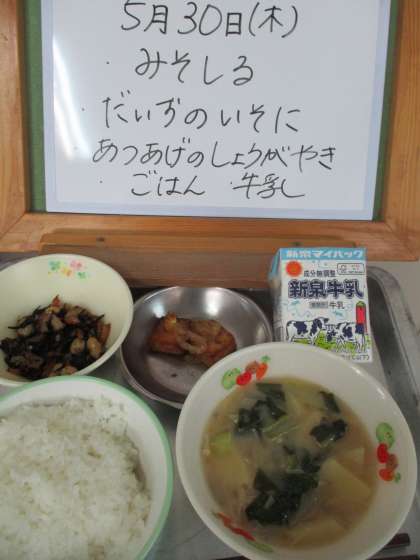 5月30日(木)
・みそしる
・だいずのいそに
・あつあげのしょうがやき
・ごはん ・牛乳
新泉マイパック
成分無調整
新泉牛乳
牛乳